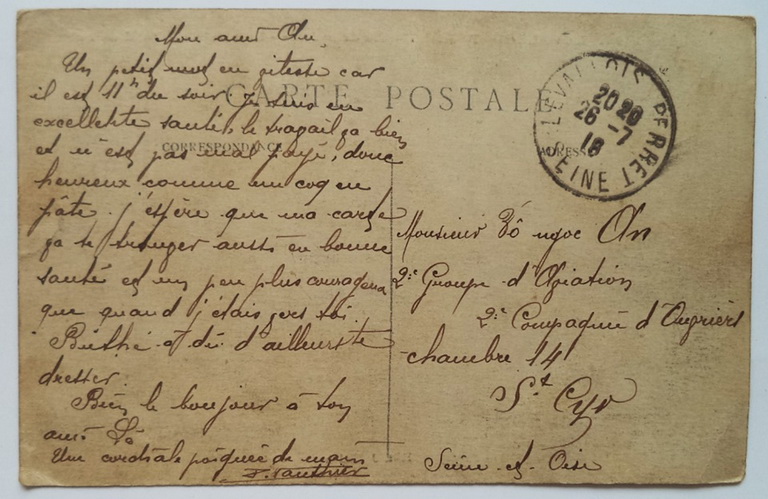 CARTE POSTALE
CORRESPONDANCE
ADRESSE
LEVALLOIS PERRET
20 20
26 - 7
18
SEINE
Mon ami An,
Un petit mot en vitesse car
il est 11h du soir, je suis en
excellente santé, le travail ça bien
et n'est pas mal payé, donc
heureux comme un coq en
pâte. j'espère que ma carte
ça te trouver aussi en bonne
santé et un peu plus courageux
que quand j'étais vers toi.
Berthé a dû d'ailleurs te
dresser.
Bien le bonjour à ton
ami Lê
Une cordiale poignée de main
Monsieur Võ ngoc An
2e Groupe d'Aviation
2e Compagnie d'Ouvriers
chambre 14
St Cyr
Seine et Oise